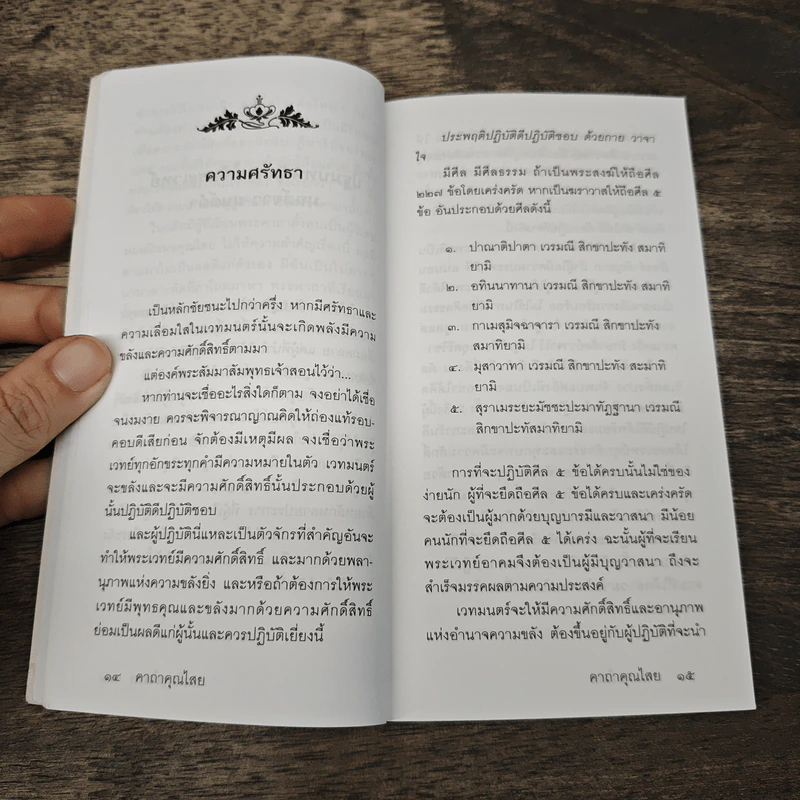 ความศรัทธา
เป็นหลักชัยชนะไปกว่าครึ่ง หากมีศรัทธาและ
ความเลื่อมใสในเวทมนตร์นั้นจะเกิดพลังมีความ
ขลังและความศักดิ์สิทธิ์ตามมา
แต่องค์พระสัมมาสัมพุทธเจ้าสอนไว้ว่า...
หากท่านจะเชื่ออะไรสิ่งใดก็ตาม จงอย่าได้เชื่อ
จนงมงาย ควรจะพิจารณาญาณคิดให้ถ่องแท้รอบ-
คอบดีเสียก่อน จักต้องมีเหตุมีผล จงเชื่อว่าพระ
เวทย์ทุกอักขระทุกคำมีความหมายในตัว เวทมนตร์
จะขลังและจะมีความศักดิ์สิทธิ์นั้นประกอบด้วยผู้
นั้นปฏิบัติดีปฏิบัติชอบ
และผู้ปฏิบัตินี่แหละเป็นตัวจักรที่สำคัญอันจะ
ทำให้พระเวทย์มีความศักดิ์สิทธิ์ และมากด้วยพลา-
นุภาพแห่งความขลังยิ่ง และหรือถ้าต้องการให้พระ
เวทย์มีพุทธคุณและขลังมากด้วยความศักดิ์สิทธิ์
ย่อมเป็นผลดีแก่ผู้นั้นและควรปฏิบัติเยี่ยงนี้
๑๔ คาถาคุณไสย
ประพฤติปฏิบัติดีปฏิบัติชอบ ด้วยกาย วาจา
ใจ
มีศีล มีศีลธรรม ถ้าเป็นพระสงฆ์ให้ถือศีล
๒๒๗ ข้อโดยเคร่งครัด หากเป็นฆราวาสให้ถือศีล ๕
ข้อ อันประกอบด้วยศีลดังนี้
๑. ปาณาติปาตา เวรมณี สิกขาปะทัง สมาทิ
ยามิ
๒. อทินนาทานา เวรมณี สิกขาปะทัง สมาทิ
ยามิ
๓. กาเมสุมิจฉาจารา เวรมณี สิกขาปะทัง
สมาทิยามิ
๔. มุสาวาทา เวรมณี สิกขาปะทัง สะมาทิ
ยามิ
๕. สุราเมระยะมัชชะปะมาทัฏฐานา เวรมณี
สิกขาปะทัสมาทิยามิ
การที่จะปฏิบัติศีล ๕ ข้อได้ครบนั้นไม่ใช่ของ
ง่ายนัก ผู้ที่จะยึดถือศีล ๕ ข้อได้ครบและเคร่งครัด
จะต้องเป็นผู้มากด้วยบุญบารมีและวาสนา มีน้อย
คนนักที่จะยึดถือศีล ๕ ได้เคร่ง ฉะนั้นผู้ที่จะเรียน
พระเวทย์อาคมจึงต้องเป็นผู้มีบุญวาสนา ถึงจะ
สำเร็จมรรคผลตามความประสงค์
เวทมนตร์จะให้มีความศักดิ์สิทธิ์และอานุภาพ
แห่งอำนาจความขลัง ต้องขึ้นอยู่กับผู้ปฏิบัติที่จะนำ
คาถาคุณไสย ๑๕